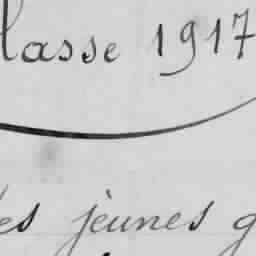 lasse 1917
es jeunes g